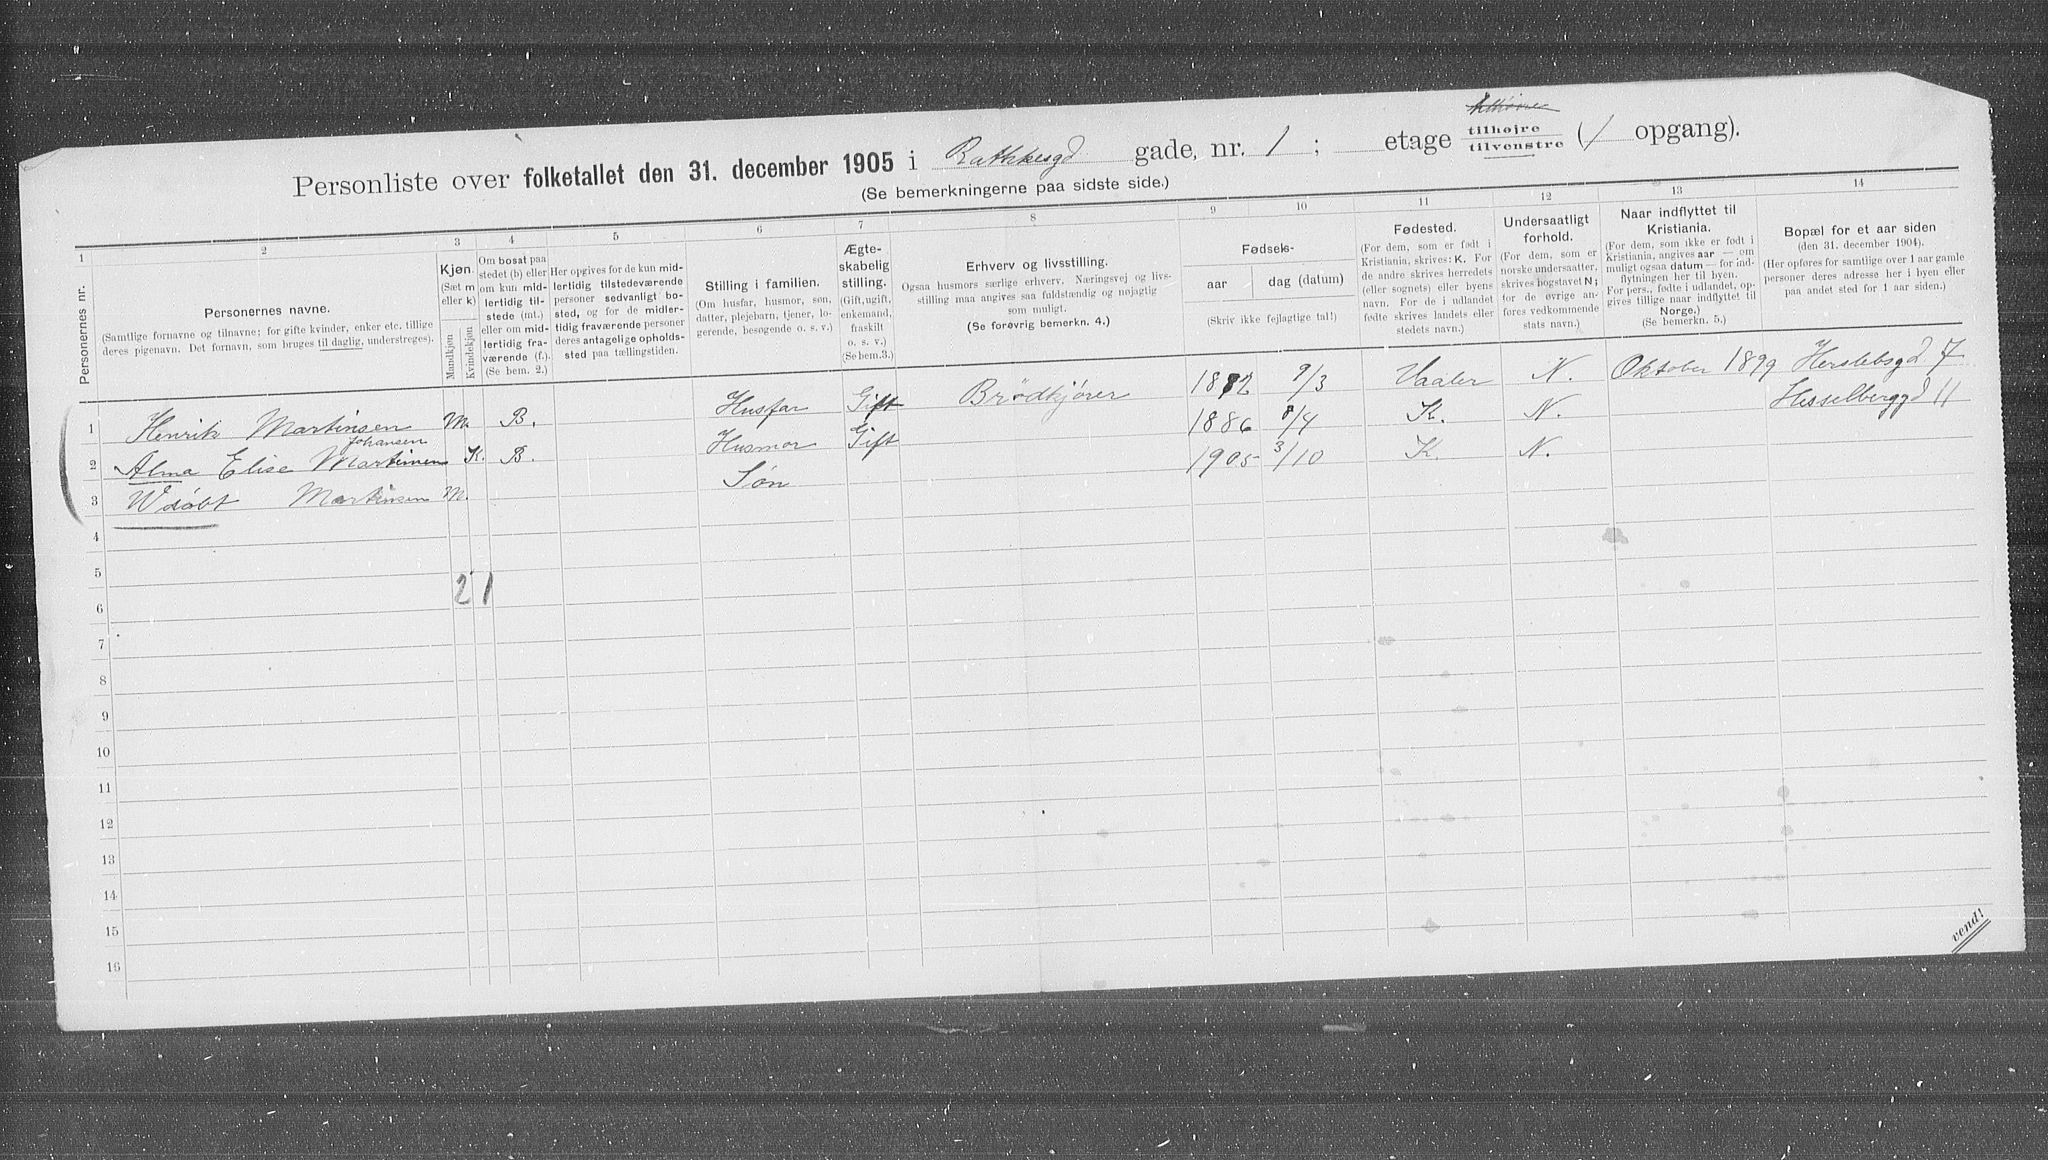 Personliste over folketallet den 31. december 1905 i Rathkesgd gade, nr. 1 ; etage tilhøjre tilvenstre (1 opgang).
(Se bemerkningerne paa sidste side.)
1 2 3 4 5 6 7 8 9 10 11 12 13 14
Personernes nr.
Personernes navne.
(Samtlige fornavne og tilnavne; for gifte kvinder, enker etc. tillige
deres pigenavn. Det fornavn, som bruges til daglig, understreges).
Kjøn.
(Sæt m
eller k)
Mandkjøn
Kvindekjøn
Om bosat paa
stedet (b) eller
om kun mid-
lertidig til-
stede (mt.)
eller om mid-
lertidig fra-
værende (f.).
(Se bem. 2.)
Her opgives for de kun mid-
lertidig tilstedeværende
personer sedvanligt bo-
sted, og for de midler-
tidig fraværende personer
deres antagelige opholds-
sted paa tællingstiden.
Stilling i familien.
(Om husfar, husmor, søn,
datter, plejebarn, tjener, lo-
gerende, besøgende o. s. v.)
Ægte-
skabelig
stilling.
(Gift, ugift,
enkemand,
fraskilt
o. s. v.)
(Se bem. 3.)
Erhverv og livsstilling.
Ogsaa husmors særlige erhverv. Næringsvej og livs-
stilling maa angives saa fuldstændig og nøjagtig
som muligt.
(Se forøvrig bemerkn. 4.)
Fødsels-
aar dag (datum)
(Skriv ikke fejlagtige tal!)
Fødested.
(For dem, som er født i
Kristiania, skrives: K. For
de andre skrives herredets
(eller sognets) eller byens
navn. For de i udlandet
fødte skrives landets eller
stedets navn.)
Undersaatligt
forhold.
(For dem, som er
norske undersaatter,
skrives bogstavet N;
for de øvrige an-
føres vedkommende
stats navn.)
Naar indflyttet til
Kristiania.
(For dem, som ikke er født i
Kristiania, angives aar — om
muligt ogsaa datum — for ind-
flytningen her til byen.
For pers., fødte i udlandet, op-
gives tillige naar indflyttet til
Norge.)
(Se bemerkn. 5.)
Bopæl for et aar siden
(den 31. december 1904).
(Her opføres for samtlige over 1 aar gamle
personer deres adresse her i byen eller
paa andet sted for 1 aar siden.)
1 Henrik Martinsen M. B. Husfar Gift Brödkjörer 1882 9/3 Vaaler N. Oktober 1899 Herslebsgd. 7
Johansen
2 Alma Elise Martinsen K. B. Husmor Gift 1886 8/4 K. N. Hesselberggd 11
3 Udöbt Martinsen M. Søn 1905 3/10 K. N.
4
5
2 1
6
7
8
9
10
11
12
13
14
15
16
vend!